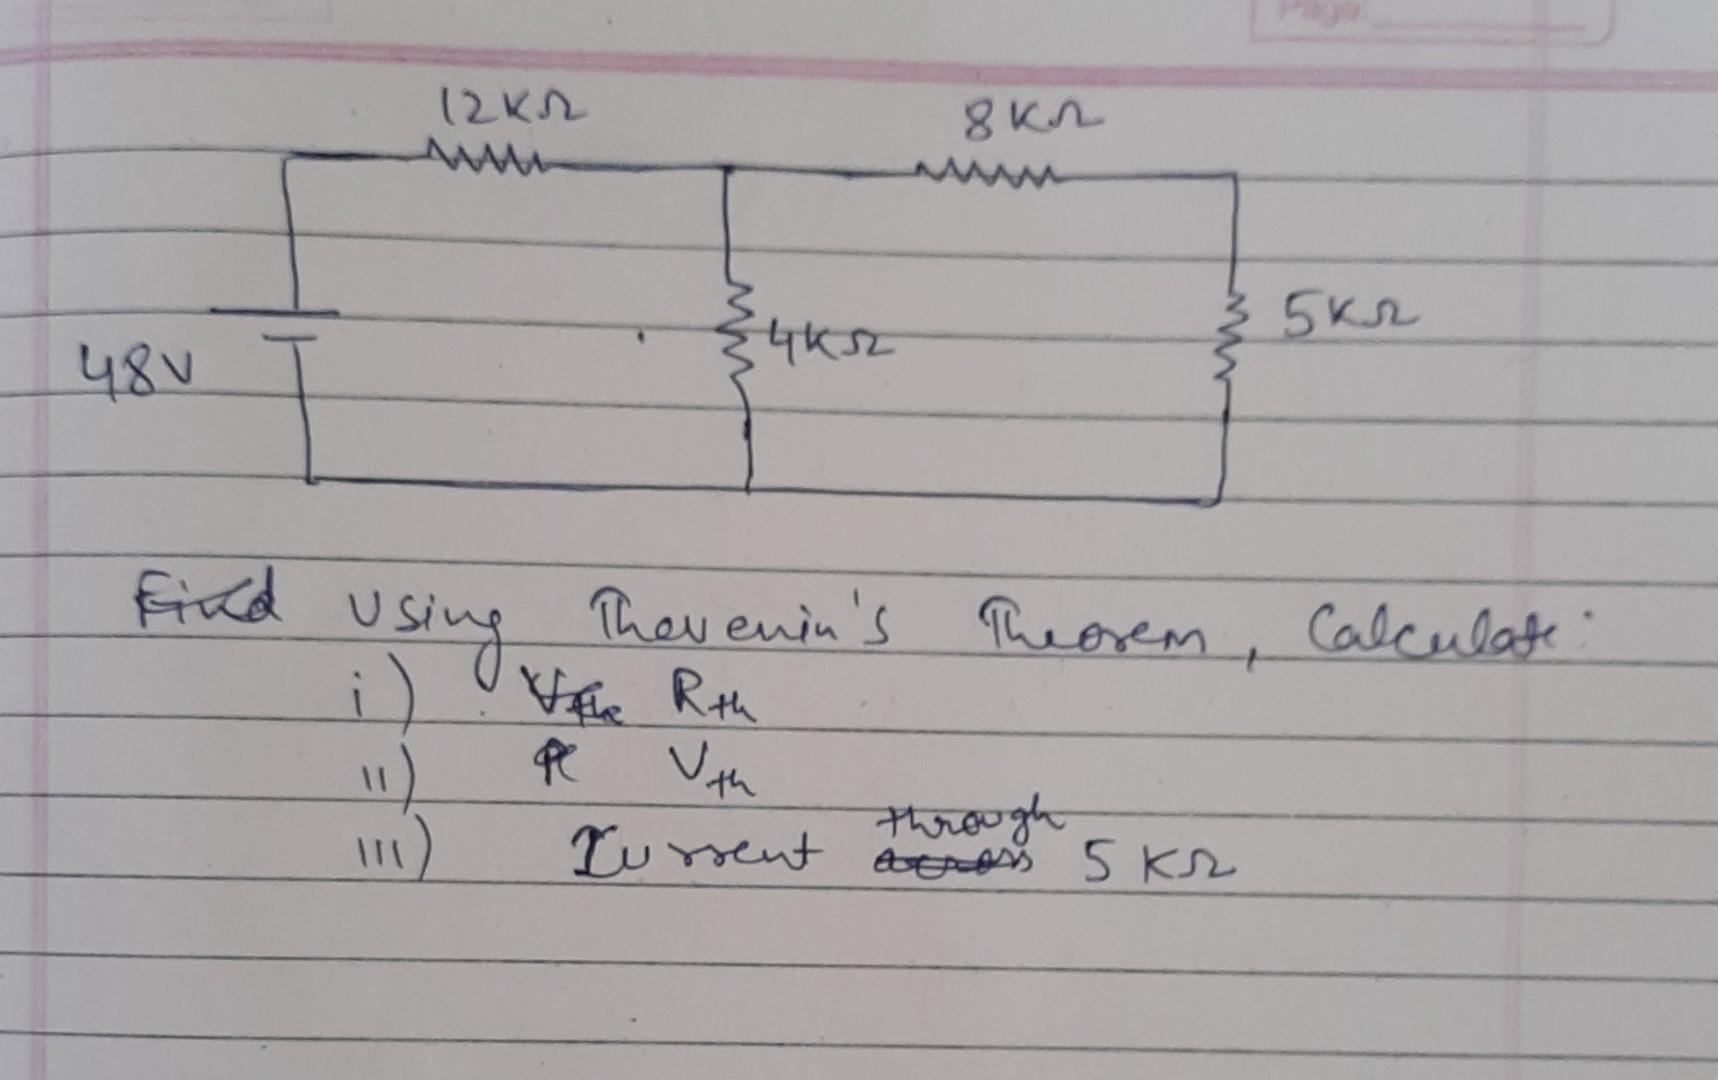 Page:
12KΩ
8KΩ
48V
4KΩ
5KΩ
Find Using Thevenin's Theorem, Calculate:
i) Vth Rth
ii) R Vth
through
iii) Current across 5 KΩ